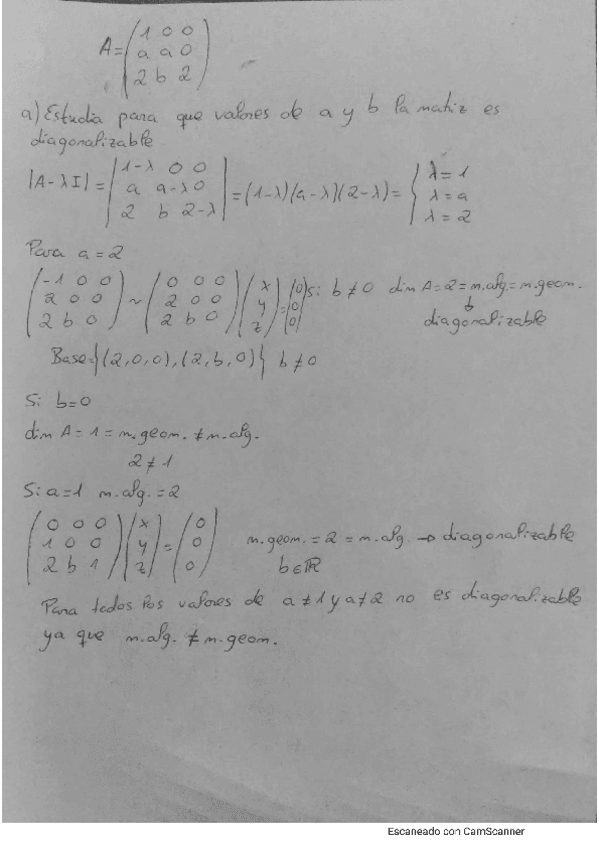 A = (1 0 0
a a 0
2 b 2)
a) Estudia para que valores de a y b la matiz es
diagonalizable
|A-λI| = |1-λ 0 0
a a-λ 0
2 b 2-λ| = (1-λ)(a-λ)(2-λ) = { λ=1
λ=a
λ=2
Para a=2
(-1 0 0
2 0 0
2 b 0) ~ (0 0 0
2 0 0
2 b 0) (x
y
z) = (0
0
0) si b≠0 dim A=2=m.alg=m.geom.
↓
diagonalizable
Base={(2,0,0),(2,b,0)} b≠0
Si b=0
dim A=1=m.geom.≠m.alg.
2≠1
Si a=1 m.alg.=2
(0 0 0
1 0 0
2 b 1) (x
y
z) = (0
0
0) m.geom.=2=m.alg.→diagonalizable
b∈ℝ
Para todos los valores de a≠1 y a≠2 no es diagonalizable
ya que m.alg.≠m.geom.
Escaneado con CamScanner